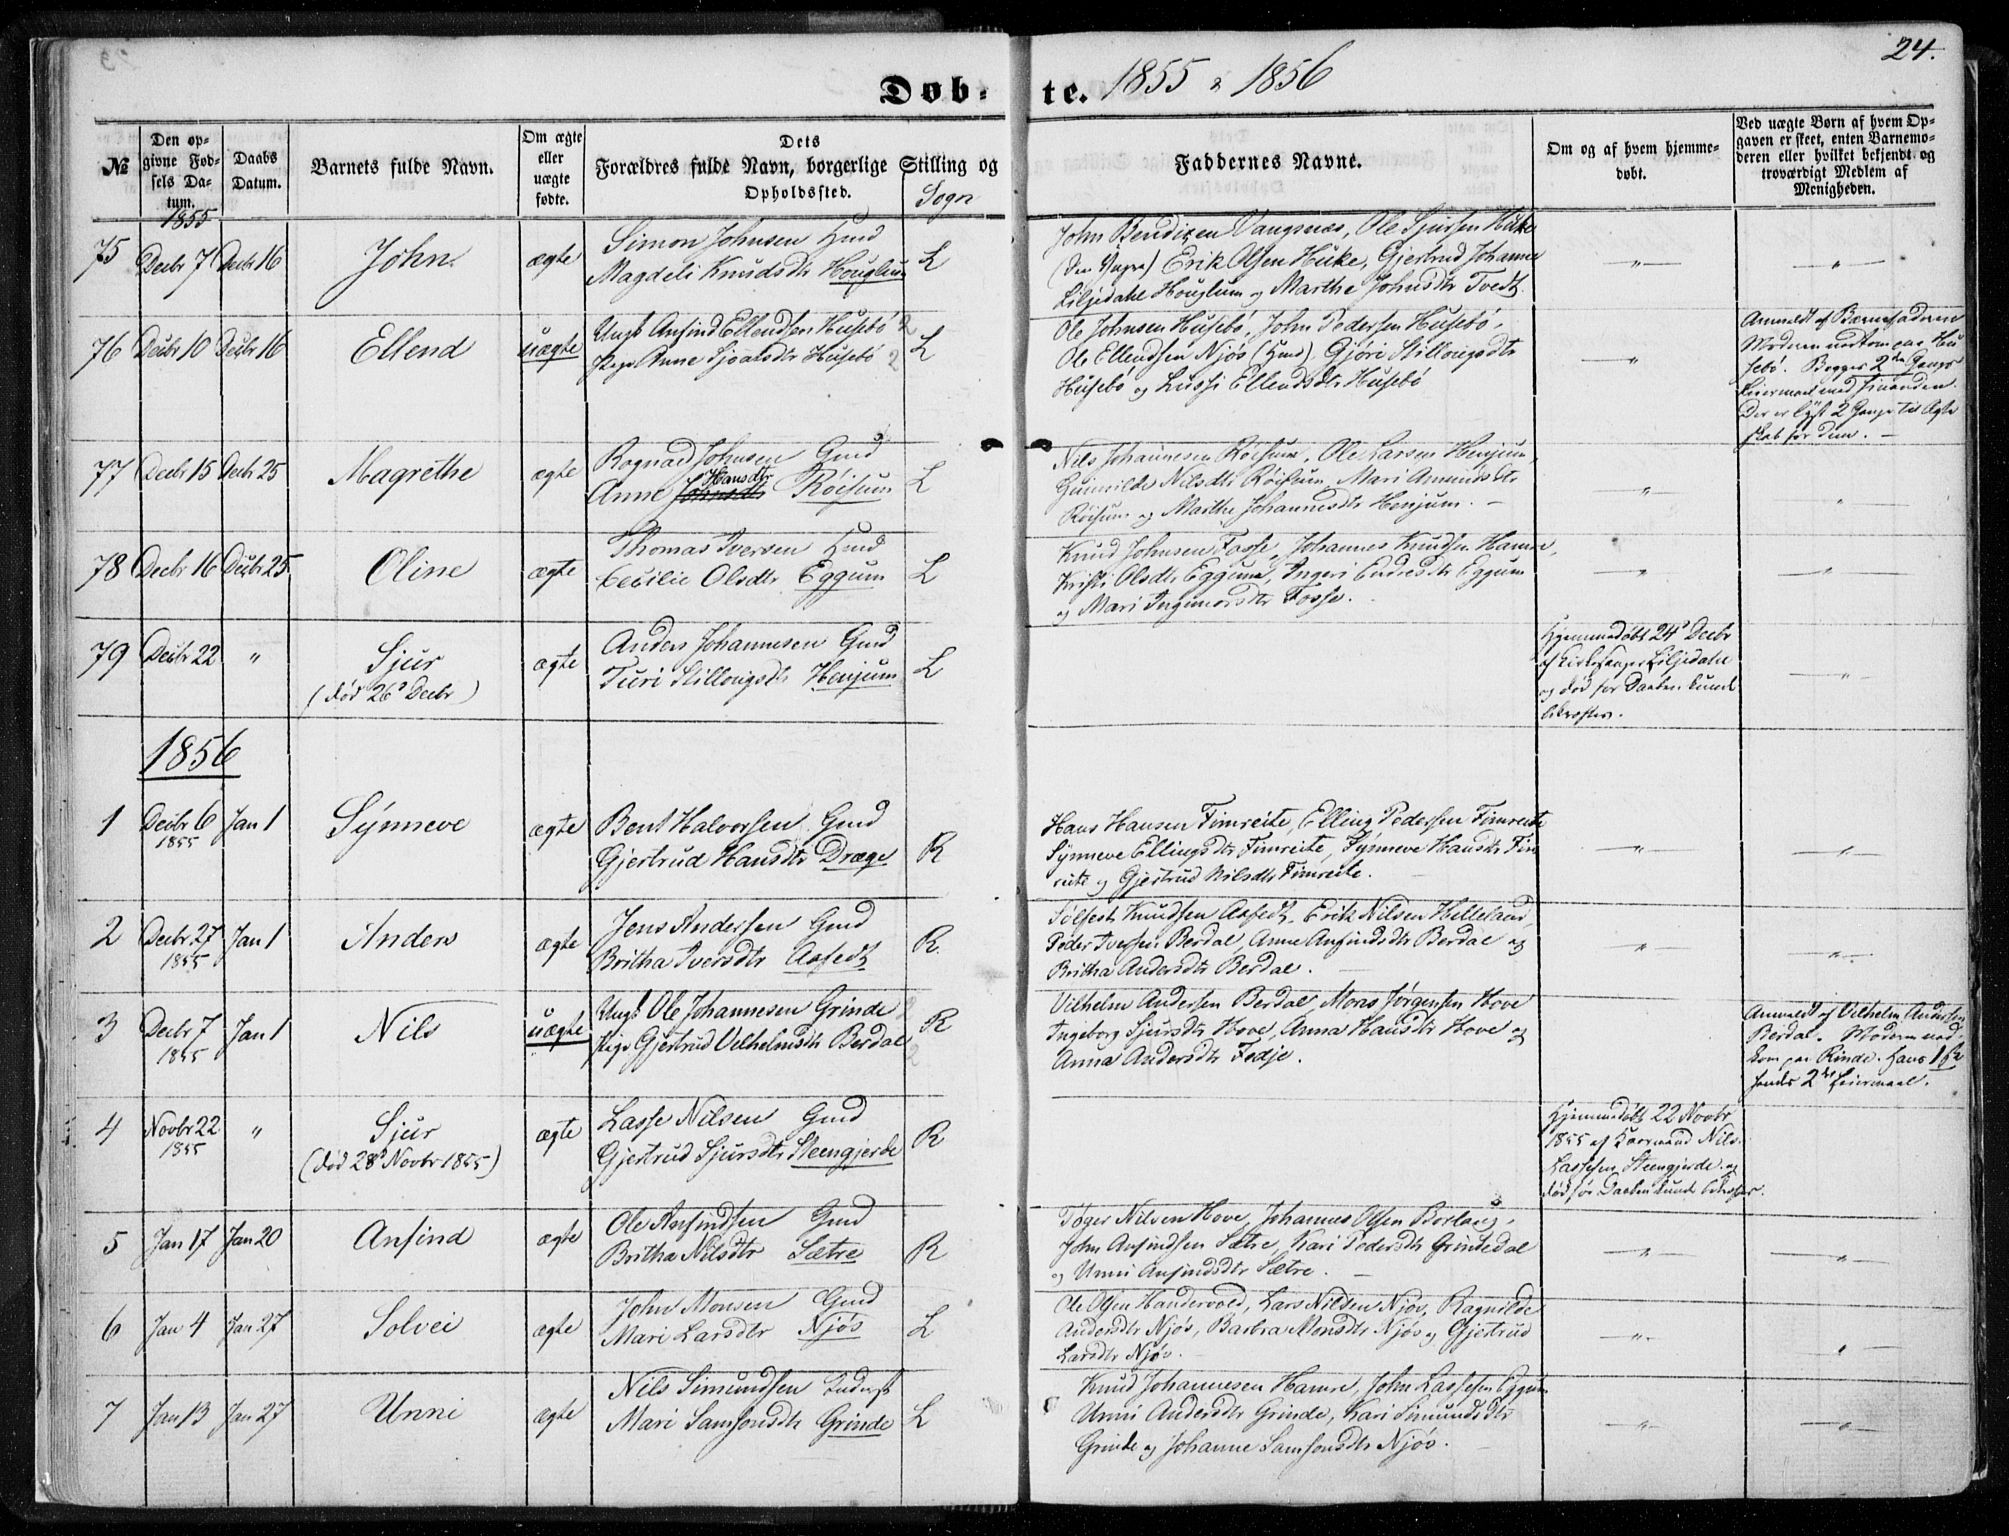 24.
Døb-te. 1855 & 1856
№
Den op-
givne Fød-
sels Da-
tum.
Daabs
Datum.
Barnets fulde Navn.
Om ægte
eller
uægte
fødte.
Dets
Forældres fulde Navn, borgerlige Stilling og
Opholdssted.
Sogn
Faddernes Navne.
Om og af hvem hjemme-
døbt.
Ved uægte Børn af hvem Op-
gaven er skeet, enten Barnemo-
deren eller hvilket bekjendt og
troværdigt Medlem af
Menigheden.
1855
75 Decbr 7 Decbr 16 John ægte
Simon Johnsen
Magdeli Knudsdtr Houglum L
John Bendixen Vangsnes, Ole Sjursen Huke
(den Yngre) Erik Olsen Huke, Gjertrud Johanne
Liljedahl Houglum og Marthe Johnsdtr Tvedt
76 Decbr 10 Decbr 16 Ellend uægte
Ungk Anfind Ellendsen Husebö 2
Pige Anne Husebö 2 L
Ole Johnsen Husebö, John Pedersen Husebö,
Ole Ellendsen Njös Gjöri Stillougsdtr
Husebö og Lussi Ellendsdtr Husebö
Anmeldt af Barnefaderen
Moderen nedkom paa Hu
sebö. Begges 2den Gangs
Leiermaal med hinanden.
Der er lyst 2 Gange til Ægte
skab for dem. –
77 Decbr 15 Decbr 25 Magrethe ægte
Ragnad Johnsen Gmd
Hansdtr
Anne Johnsdtr Röisum L
Nils Johannesen Röisum, Ole Larsen Henjum,
Nilsdtr Röisum, Mari Amundsdtr
Röisum og Marthe Johannesdtr Henjum. –
78 Decbr 16 Decbr 25 Oline ægte
Thomas Iversen
Cecilie Olsdtr Eggum L
Knud Johnsen Fosse, Johannes Knudsen Hamre,
Kristi Olsdtr Eggum, Ingeri Endresdtr Eggum
og Mari Ingemorsdtr Fosse.
79 Decbr 22 " Sjur ægte
(död 26d Decbr)
Anders Johannesen Gmd
Turi Stillougsdtr Henjum L
Hjemmedöbt 24d Decbr
af Kirkesanger Liljedahl
og död før Daaben kunde
bekræftes.
1856
1 Decbr 6 Jan 1 Synneve ægte
1855
Bent Halvorsen Gmd
Gjertrud Hansdtr Dræge R
Hans Hansen Fimreite, Elling Pedersen Fimreite
Synneve Ellingsdtr Fimreite, Synneve Hansdtr Fim
reite og Gjertrud Nilsdtr Fimreite.
2 Decbr 27 Jan 1 Anders ægte
1855
Jens Andersen Gmd
Britha Iversdtr Aafedt R.
Sölfest Knudsen Aafedt, Erik Nilsen Helleland,
Peder Iversen Berdal, Anne Anfindsdtr Berdal og
Britha Andersdtr Berdal.
3 Decbr 7 Jan 1 Nils uægte
1855
Ungk Ole Johannesen Grinde 2
Pige Gjertrud Vilhelmsdtr Berdal 2 R
Vilhelm Andersen Berdal, Mons Jörgensen Hove
Ingeborg Sjursdtr Hove, Anna Hansdtr Hove og
Anna Andersdtr Fedje.
Anmeldt af Vilhelm Andersen
Berdal. Moderen ned
kom paa Rinde. Hans 1ste
hendes 2det Leiermaal.
4 Novbr 22 " Sjur ægte
1855
(död 28d Novbr 1855)
Lasse Nilsen Gmd
Gjertrud Sjursdtr Steengjerde R
Hjemmedöbt 22 Novbr
1855 af Kaarmand Nils
Lassesen Steengjerde og
död før Daaben kunde bekræftes.
5 Jan 17 Jan 20 Anfind ægte
Ole Anfindsen Gmd
Britha Nilsdtr Sætre R
Töger Nilsen Hove, Johannes Olsen Borlaug,
John Anfindsen Sætre, Kari Pedersdtr Grindedal
og Unni Anfindsdtr Sætre.
6 Jan 4 Jan 27 Solvei ægte
John Monsen Gmd
Mari Larsdtr Njös L
Ole Olsen Handevold, Lars Nilsen Njös, Ragnilde
Andersdtr Njös, Barbra Monsdtr Njös og Gjertrud
Larsdtr Njös.
7 Jan 13 Jan 27 Unni ægte
Nils Simundsen
Mari Samsonsdtr Grinde L
Knud Johannesen Hamre, John Lassesen Eggum
Unni Andersdtr Grinde, Kari Simundsdtr
Grinde og Johanne Samsonsdtr Njös.